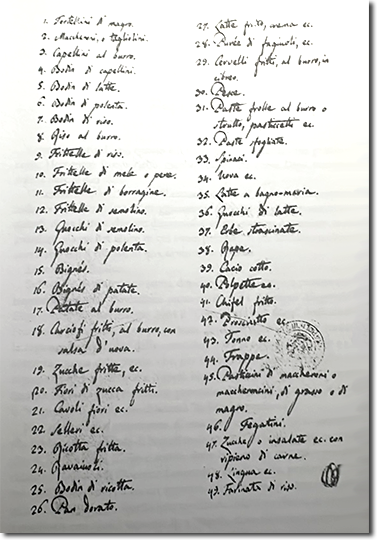 1. Tortellini di magro.
2. Maccheroni o tagliolini.
3. Capellini al burro.
4. Bodin di capellini.
5. Bodin di latte.
6. Bodin di polenta.
7. Bodin di riso.
8. Riso al burro.
9. Frittelle di riso.
10. Frittelle di mele o pere.
11. Frittelle di borragine.
12. Frittelle di semolino.
13. Gnocchi di semolino.
14. Gnocchi di polenta.
15. Bignés.
16. Bignés di patate.
17. Patate al burro.
18. Carciofi fritti, al burro, con
salsa d'uova.
19. Zucche fritte, ec.
20. Fiori di zucca fritti.
21. Cavoli fiori ec.
22. Selleri ec.
23. Ricotta fritta.
24. Ravaiuoli.
25. Bodin di ricotta.
26. Pan dorato.
27. Latte fritto, crema ec.
28. Purée di fagiuoli, ec.
29. Cervelli fritti, al burro, in
cibreo.
30. Pesce.
31. Paste frolle al burro o
strutto, pasticcetti ec.
32. Paste sfogliate.
33. Spinaci.
34. Uova ec.
35. Latte a bagno-maria.
36. Gnocchi di latte.
37. Erbe strascinate.
38. Rape.
39. Cacio cotto.
40. Polpette ec.
41. Chifel fritto.
42. Prosciutto ec.
43. Tonno ec.
44. Frappe.
45. Pasticcini di maccheroni o
maccheroncini, di grasso o di
magro.
46. Fegatini.
47. Zucche o insalate ec. con
ripieno di carne.
48. Lingua ec.
49. Farinata di riso.